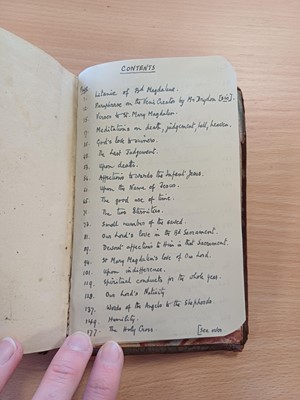 CONTENTS
Page
Litanie of Bd Magdalene.
Paraphrase on the Veni Creator by Mr Drydon
Verses to St. Mary Magdalen.
Meditations on death, judgement, hell, heaven.
God's love to sinners.
The Last Judgement.
Upon death.
Affections towards the Infant Jesus.
Upon the Name of Jesus.
66. The good use of time.
71. The two Eternities.
Small number of the saved.
81. Our Lord's love in the Bd Sacrament.
89. Devout affections to Him in that Sacrament.
94. St Mary Magdalen's love of Our Lord.
101. Upon indifference.
119. Spiritual conducts for the whole year.
128. Our Lord's Nativity
137. Words of the Angels to the Shepherds.
149. Humility.
177. The Holy Cross [see over